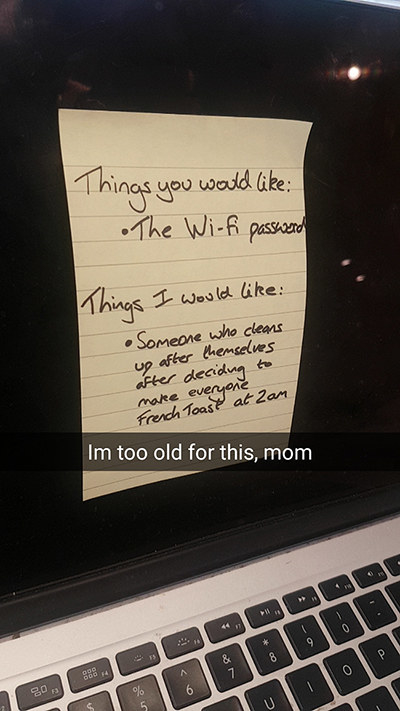 Things you would like:
•The Wi-fi password
Things I would like:
•Someone who cleans
up after themselves
after deciding to
make everyone
French Toast at 2am
Im too old for this, mom
F3
F4
F5
F6
F7
F8
F9
F10
F11
$
% 5
^ 6
& 7
* 8
( 9
) 0
-
U
I
O
P